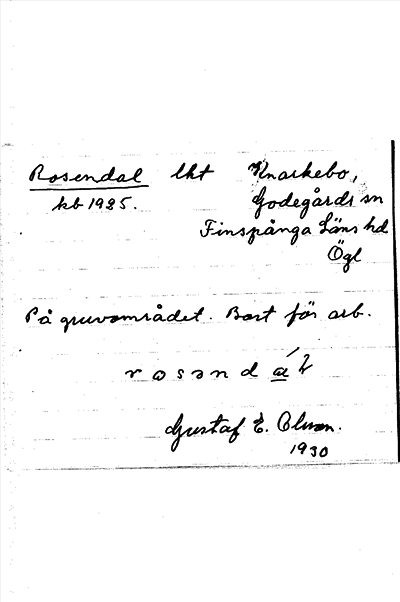 Rosendal lht Knarkebo,
kb 1925. Godegårds sn
Finspånga Läns hd
Ögl
På gruvområdet. Bost för arb.
Gustaf E. Olsson.
1930